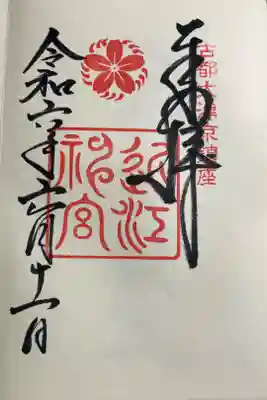 古都大津京鎮座
奉拝
近江神宮
令和六年六月十一日